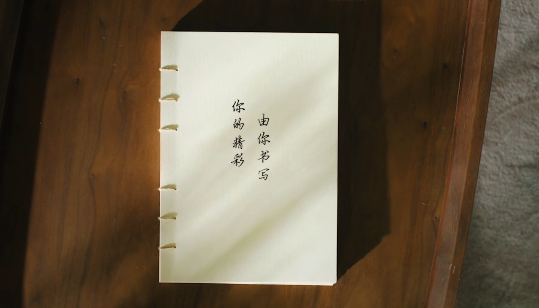 你的精彩
由你书写